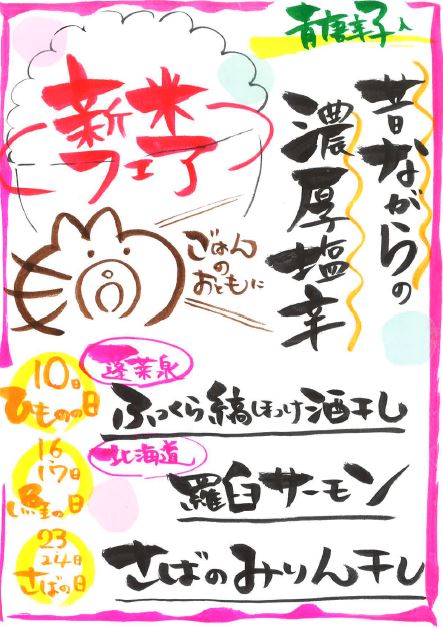 青唐辛子入
昔ながらの
濃厚塩辛
新米
フェア
ごはん
の
おともに
10日
ひものの日
蓬莱泉
ふっくら縞ほっけ酒干し
16
17日
鮭の日
北海道
羅臼サーモン
23
24日
さばの日
さばのみりん干し